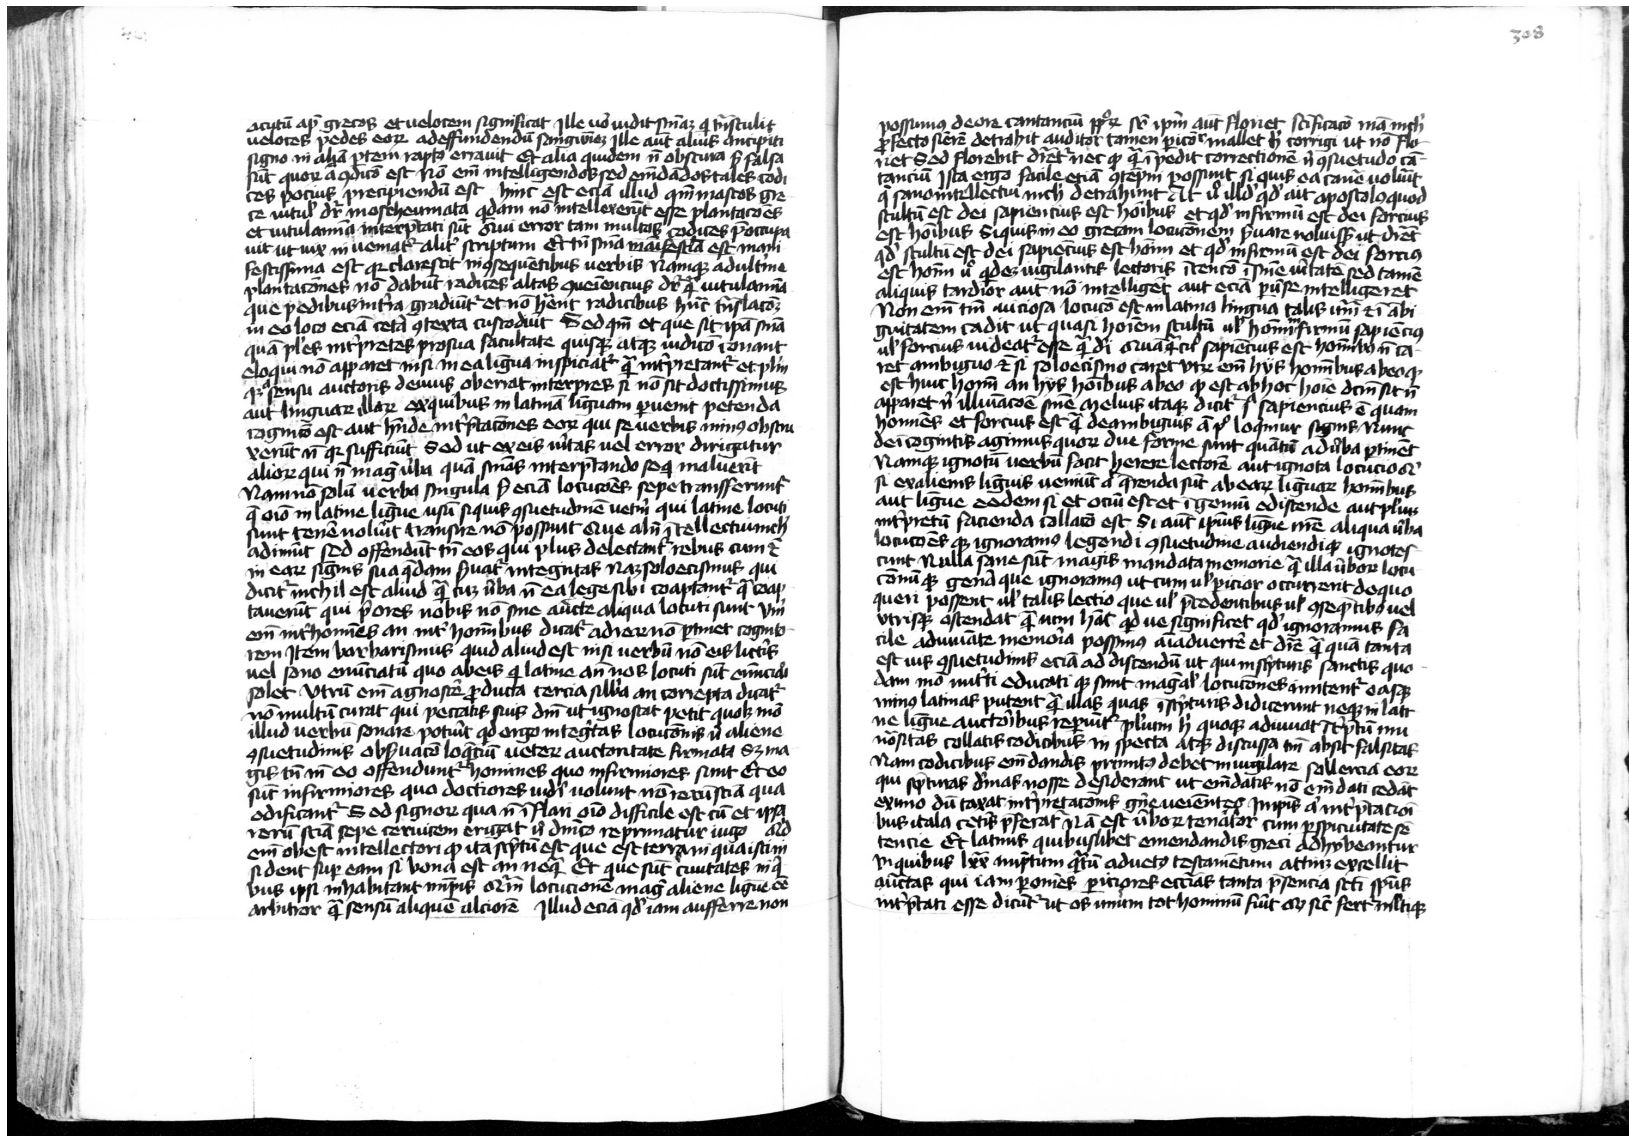 acutū apᵈ grecos et velocem significat Ille uo vidit sn̄iaƺ q̄ trāstulit
veloces pedes eorꝝ ad effundendū sanguinēƺ Ille aut̄ alius ancipiti
signo in aliā ꝑtem rapto erravit Et alia quidem nō obscura sƺ falsa
sūt quorꝝ alia ꝯdicō est Nō em̄ intelligendos sed emēdādos tales codi
ces pocius precipiendū est hinc est eciā illud qm̄ mascos gre
ce vitulꝰ dr̄ moscheumata qdam nō intellexerūt esse plantacōes
et vitulamīa interp̄tati sūt Qui error tam multos codices p̄occupa
vit ut vix inveniatᵉ alitᵉ scriptum Et tn̄ sn̄ia manifestiā est mani
festissima est qꝛ clarescit in ꝯsequentibus verbis Namqꝫ adultᵉine
plantacōnes nō dabūt radices altas ꝯveniencius dr̄ q̄ vitulamīa
que pedibus in tᵉra gradiūtᵉ et nō hēnt radicibus hūc trāslacōeƺ
in eo loco eciā cetᵉa ꝯtexta custodiūt Sed qm̄ et que sit ipā sn̄ia
quā plᵉes intᵉpretes pro sua facultate quisqꝫ atqꝫ iudicō conant
eloqui nō apparet nisi in ea ligua inspiciatᵉ q̄ intᵉpretantᵉ et plᵉm
qꝫ a sensu auctoris devius oberrat interpres si nō sit doctissimus
aut linguarꝝ illarꝝ ex quibus in latinā liguam ꝑvenit petenda
cognicō est aut hn̄de intᵉp̄tacōnes eorꝝ qui se verbis nimiꝰ obstri
xerūt nō qꝛ sufficiūt Sed ut ex eis vᵉitas vel error dirigatur
aliorꝝ qui nō maḡ vᵉba quā sn̄ias interp̄tando seqᵉ maluerīt
Nam nō solū verba singula sƺ eciā locucōes sepe transferuntᵉ
q̄ oīo in latine ligue usū si quis ꝯsuetudinē vetᵉum qui latine locuti
sunt tenē volūit transire nō possunt Que aliqn̄ ītellectui nichᵉ
adimūt sed offendūt tn̄ eos qui plus delectantᵉ rebus cum eciā
in earꝝ signis sua qdam sᵉvatᵉ integritas Naƺ soloecismus qui
dicitᵉ nichil est aliud q̄ cuƺ vᵉba nō ea lege sibi coaptantᵉ q̄ coap
taverūt qui p̄ores nobis nō sine aucte aliqua locuti sunt Vtᵉm
em̄ intᵉ homines an intᵉ homībus dicatᵉ ad rerꝝ nō ꝑtinet cognito
rem Item barbarismus quid aliud est nisi verbū nō eis litᵉis
vel sono enūciatū quo ab eis qᵉ latine an̄ nos locuti sūt enūciari
solet Vtrū em̄ agnoscēre ꝓducta tercia silba an correpta dicatᵉ
nō multū curat qui peccatis suis dm̄ ut ignoscat petit quoqꝫ mō
illud verbū sonare potūit Quid ergo integᵉtas locucōnis nisi aliene
ꝯsuetudinis obsᵉvacō loqᵉtiū veterꝝ auctoritate firmata Sƺ ma
gis tn̄ in eo offenduntᵉ homines quo infirmiores sunt Et eo
sūt infirmiores quo doctiores viderī volunt nō rerꝝ sciā qua
edificantᵉ Sed signorꝝ qua nō īflari oīo difficile est cū et ipsa
rerū sciā sepe cervicem erigat nisi dn̄ico reprimatur iugo Quid
em̄ obest intellectori qᵈ ita scptū est que est terra in qua isti in
sident sup eam si bona est an neqᵃ Et que sūt civitates in q̄
bus ipsi inhabitant in ipsis Quā locucionē maḡ aliene ligue eē
arbitror q̄ sensū aliquē alciorē Illud eciā qᵈ iam aufferre non
possumꝰ de ore cantanciū ppᵒlorꝝ sr̄ ipm̄ aut̄ floriet scificacō mā nichᵉ
ꝓfecto sn̄ie detrahit auditor tamen peritior mallet hᵒ corrigi ut nō flo
riet Sed florebit dir̄etᵉ nec qᵈ q̄ īpedit correctionē nisi ꝯsuetudo cā
tanciū Ista ergo facile eciā ꝯtēpni possunt si quis ea cavē volūit
q̄ sano intellectui nichᵉ detrahunt At vᵉ illᵈ qᵈ ait apostolꝰ quod
stultū est dei sapiencius est hoībus et qᵈ infirmū est dei forcius
est hoībus Si quis in eo grecam locucionem sᵉvare voluissᵉ ut diret
qᵈ stultū est dei sapiencius est homī et qᵈ infirmū est dei forciꝰ
est homī iret qᵈeƺ vigilantis lectoris ītencō ī sn̄ie vᵉitatē sed tamē
aliquis tardior aut nō intelligetᵉ aut eciā ꝑvᵉse intelligeret
Non em̄ tm̄ viciosa locucō est in latina lingua talis vᵉm et ī ambi
guitatem cadit ut quasi hoīem stultū vel homīm infirmū sapienciꝰ
vel forcius videatᵉ esse q̄ dei Quāq̄ et sapiencius est homībꝰ nō ca
ret ambiguo etsi soloecismo caret Vtrꝝ em̄ hys homībus ab eo qᵈ
est huic homī an hys hoībus ab eo qᵈ est ab hoc hoīe dcm̄ sit nō
apparet nisi illuīacōe sn̄ie Melius itaqꝫ dicitᵉ sic sapiencius ē quam
homines et forcius est q̄ De ambiguis aut̄ pᵒ loqmur signis Nunc
de īcognitis agimus quorꝝ due forme sunt quātū ad vᵉba ꝑtinēt
Namqꝫ ignotū verbū facit herere lectorē aut ignota locucio Qᵉ
si ex alienis liguis veniūt aut q̄renda sūt ab earꝝ liguarꝝ homībus
aut ligue eedem si et ociū est et īgeniū ediscende aut plᵉiuƺ
intᵉpretū facienda collacō est Si aut̄ ipsius ligue nr̄e aliqua vᵉba
locucōes qꝫ ignoramꝰ legendi ꝯsuetudine audiendiqꝫ ignotes
cunt Nulla sane sūt magis mandata memorie q̄ illa vᵉborꝝ locu
cōnū qꝫ genᵉa que ignoramꝰ ut cum vel picior occurrerit de quo
queri possent vel talis lectio que vel p̄cedentibus vel ꝯseqᵉtibꝰ vel
utrisqꝫ ostendat q̄ vim hāt qᵈ ve significet qᵈ ignoramus Fa
cile adiuvāte memoria possimꝰ aīadvertē et dic̄e q̄ quā tanta
est vis ꝯsuetudinis eciā ad discendū ut qui in scpturis sanctis quo
dam mō nutᵉti educati qꝫ sunt maḡ al̓ locucōnes mirentᵉ easqꝫ
minꝰ latinas putent q̄ illas quas ī scpturis didicerunt neqꝫ in lati
ne ligue auctoribus reꝑiūtᵉ Plᵉiƺ hic quoqꝫ adiuvat ītᵉp̄tū nu
nōsitas collatis codicibus inspecta atqꝫ discussa tm̄ absit falsitas
Nam codicibus emēdandis primitꝰ debet invigilare sollercia eorꝝ
qui scpturas divīas nosse desiderant ut emēdatis nō emēdati cedāt
ex uno dū taxat intᵉpretacōnis genᵉe veientes In ipsis aut̄ intᵉp̄tacioī
bus itala cetᵉis p̄ferat Nā est vᵉborꝝ tenacior cum ꝑspicuitate sē
tencie Et latinis quibuslibet emendandis greci adhybeantur
In quibus lxx intᵉp̄tum qᵃtū ad vetꝰ testamētum attinƺ excellit
auctᵉitas qui iam p omēs ꝑiciores ecciās tanta p̄sencia scti spūs
intᵉp̄tati esse dicūtᵉ ut os unum tot hominū fūit Qui sic̄ fertᵉ mltiqꝫ